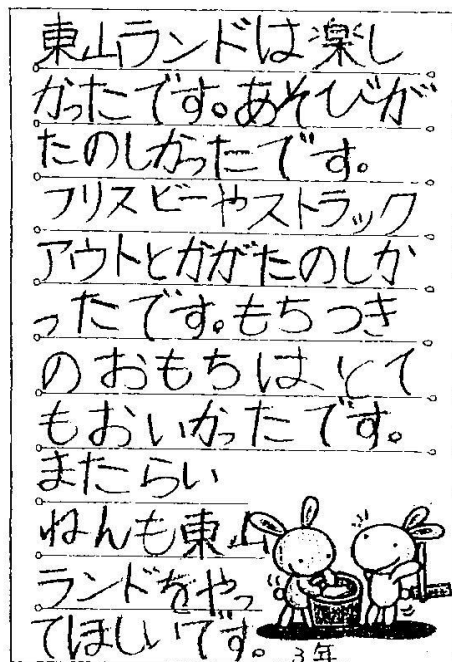 東山ランドは楽し
かったです。あそびが
たのしかったです。
フリスビーやストラック
アウトとかがたのしか
ったです。もちつき
のおもちは、とて
もおいかったです。
またらい
ねんも東山
ランドをやっ
てほしいです。3年